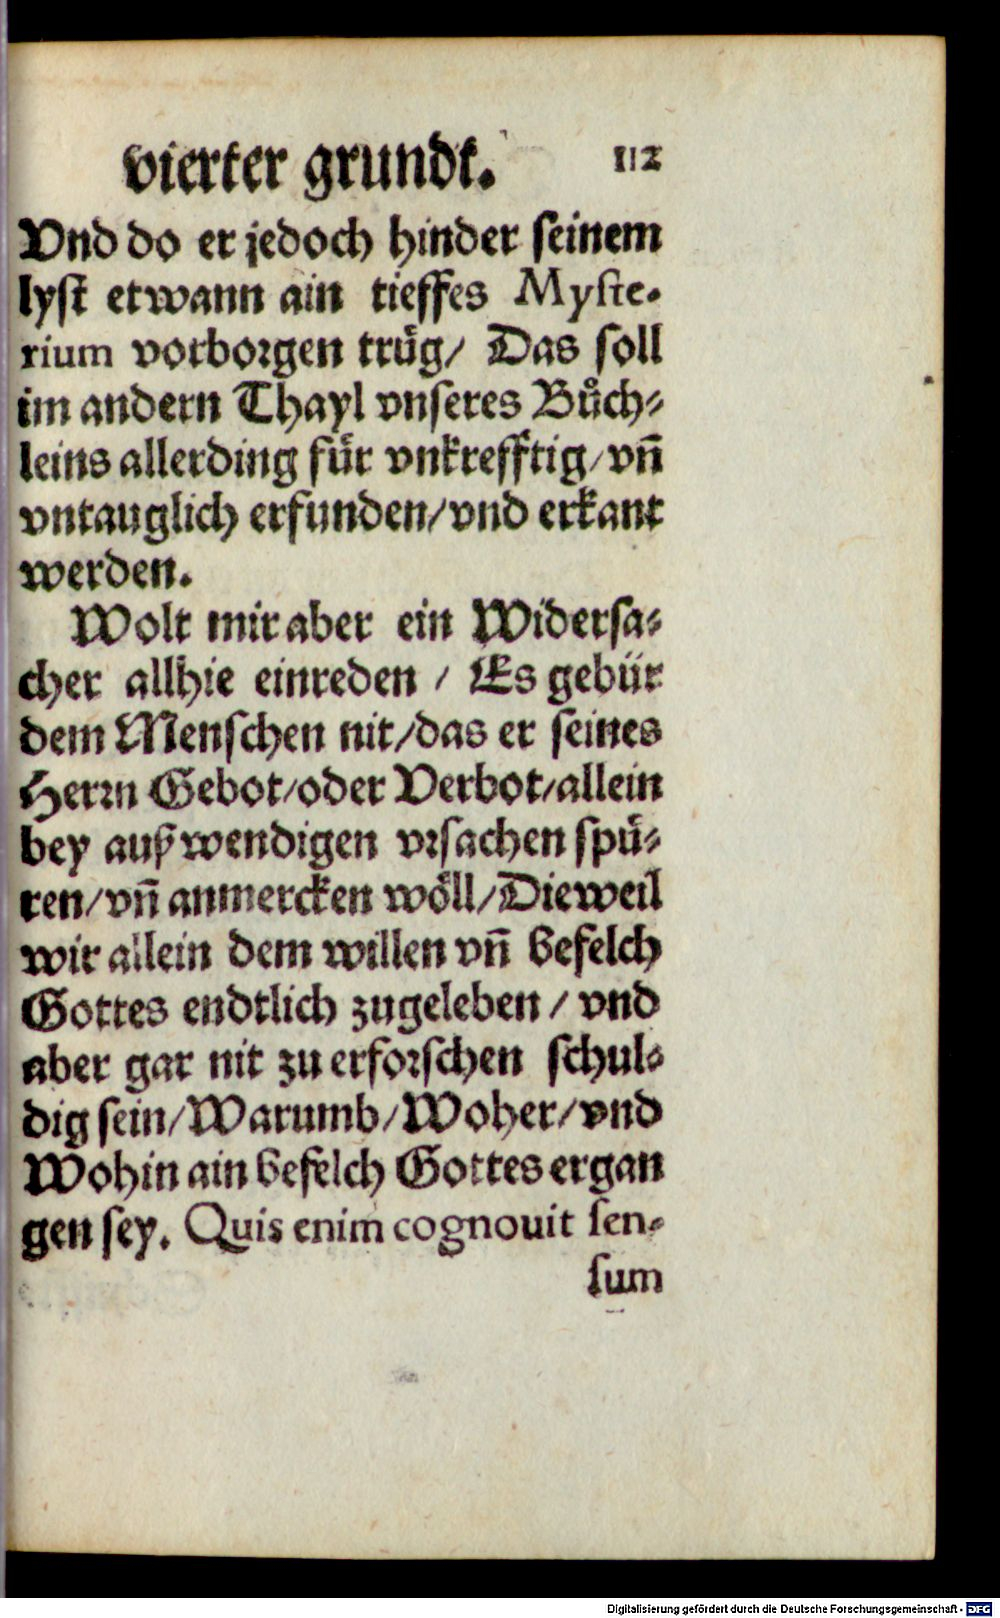 vierter grundt. 112
Vnd do er jedoch hinder seinem
lyst etwann ain tieffes Myste-
rium vorborgen trůg/ Das soll
im andern Thayl vnseres Bůch-
leins allerding fůr vnkrefftig/vn̄
vntauglich erfunden/vnd erkant
werden.
Wolt mir aber ein Widersa-
cher allhie einreden / Es gebür
dem Menschen nit/das er seines
Herrn Gebot/oder Verbot/allein
bey außwendigen vrsachen spü-
ren/vn̄ anmercken wöll/Dieweil
wir allein dem willen vn̄ befelch
Gottes endtlich zugeleben / vnd
aber gar nit zu erforschen schul-
dig sein/Warumb/Woher/vnd
Wohin ain befelch Gottes ergan
gen sey. Quis enim cognouit sen-
sum
Digitalisierung gefördert durch die Deutsche Forschungsgemeinschaft - DFG